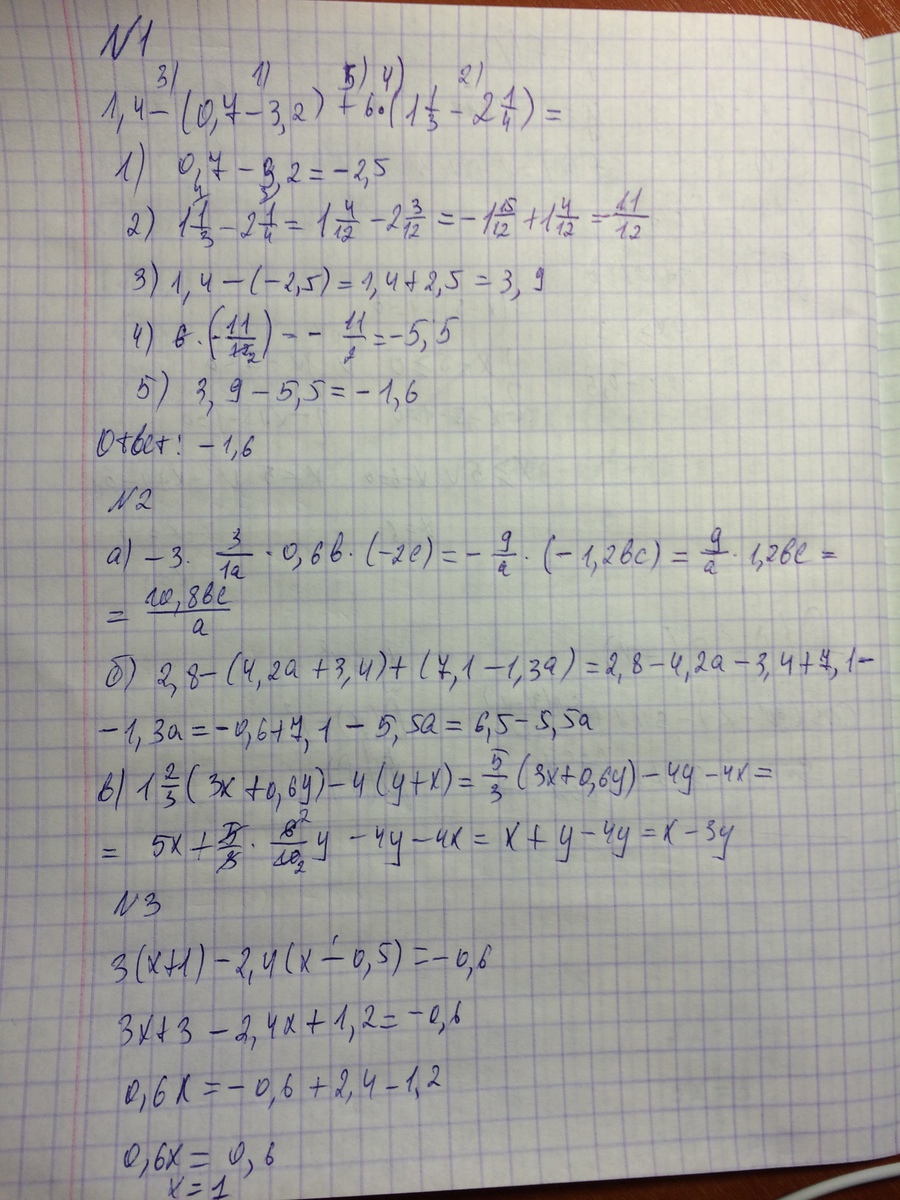 №1
3) 1) 5) 4) 2)
1,4-(0,7-3,2)+6·(1 1/3 - 2 1/4)=
1) 0,7-3,2=-2,5
2) 1 1/3 - 2 1/4 = 1 4/12 - 2 3/12 = -1 15/12 + 1 4/12 = 11/12
3) 1,4-(-2,5)=1,4+2,5=3,9
4) 6·(-11/12) = - 11/2 =-5,5
5) 3,9-5,5=-1,6
Ответ: -1,6
№2
а) -3· 3/1a ·0,6в·(-2c)=- 9/a ·(-1,2вc)= 9/a ·1,2вc=
= 10,8вc/a
б) 2,8-(4,2a+3,4)+(7,1-1,3a)=2,8-4,2a-3,4+7,1-
-1,3a=-0,6+7,1-5,5a=6,5-5,5a
в) 1 2/3 (3x+0,6y)-4(y+x)= 5/3 (3x+0,6y)-4y-4x=
= 5x+ 5/3 · 6/10 y -4y-4x=x+y-4y=x-3y
№3
3(x+1)-2,4(x-0,5)=-0,6
3x+3-2,4x+1,2=-0,6
0,6x=-0,6+2,4-1,2
0,6x=0,6
x=1